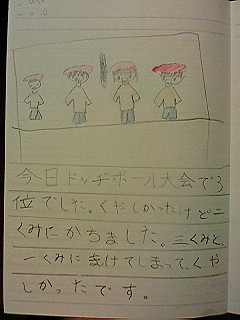 今日ドッヂボール大会で3
位でした。くやしかったけど二
くみにかちました。三くみと、
一くみにまけてしまって、くや
しかったです。